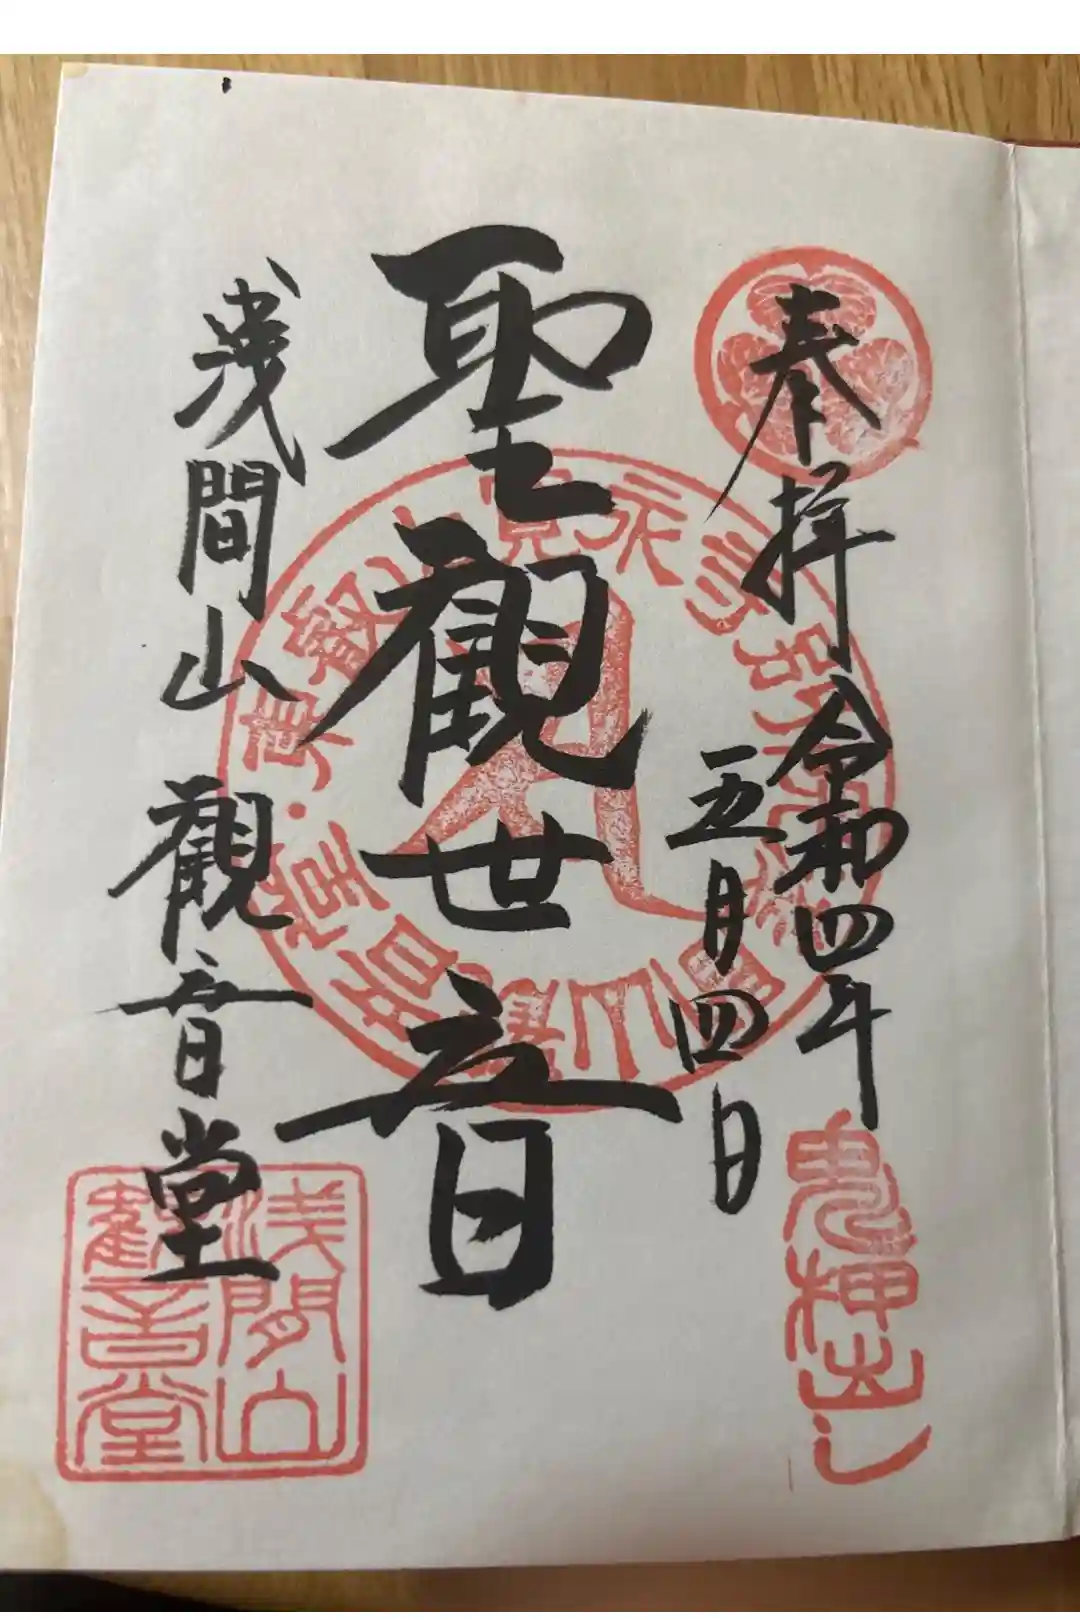 奉拝
令和四年
五月四日
聖観世音
浅間山 観音堂
鬼押出し
浅間山
観音堂